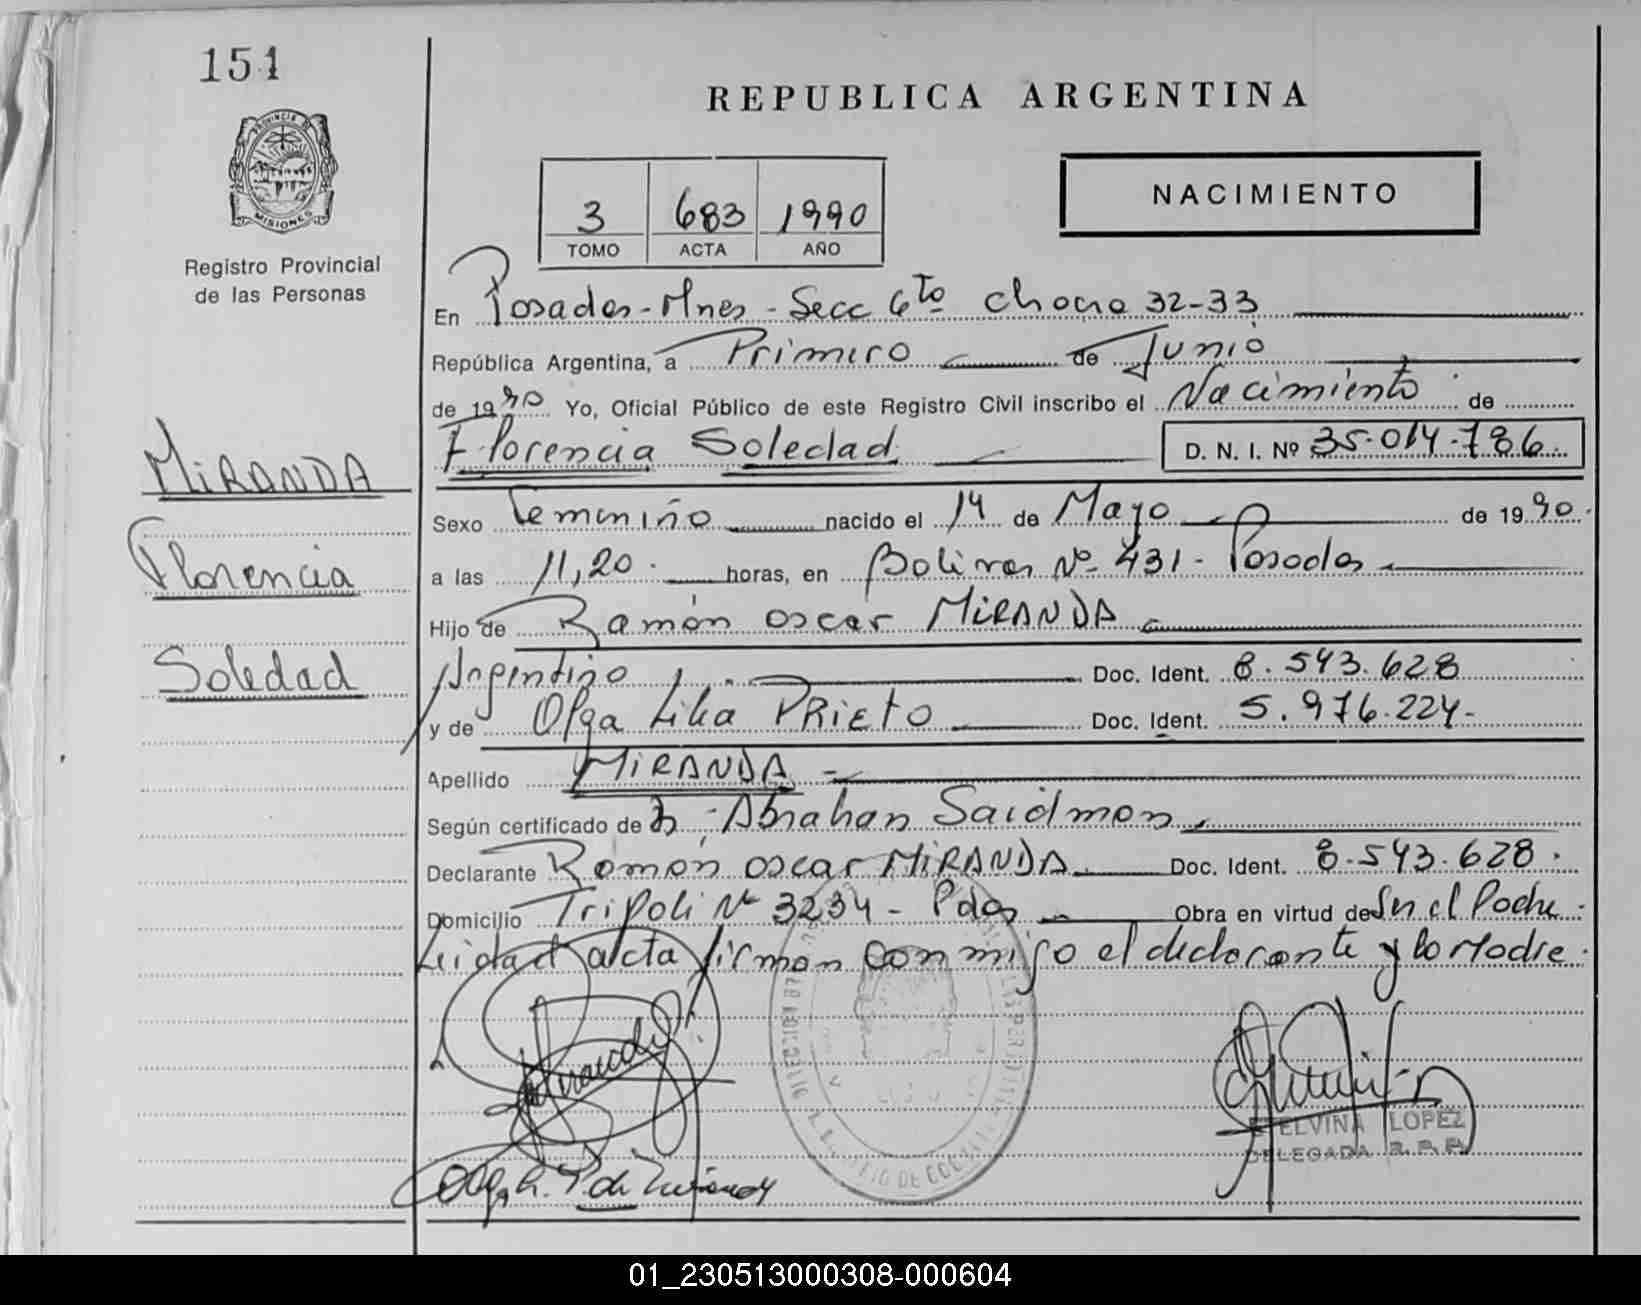 151
REPUBLICA ARGENTINA
PROVINCIA DE
MISIONES
Registro Provincial
de las Personas
3 683 1990
TOMO ACTA AÑO
NACIMIENTO
En Posadas-Mnes - Secc 6to chacra 32-33
República Argentina, a Primero de Junio
de 1990 Yo, Oficial Público de este Registro Civil inscribo el Nacimiento de
Florencia Soledad D. N. I. Nº 35.014.786
MIRANDA
Florencia
Soledad
Sexo Femenino nacido el 14 de Mayo de 1990
a las 11,20 horas, en Bolivar Nº 431 - Posadas
Hijo de Ramón Oscar MIRANDA
Argentino Doc. Ident. 8.543.628
y de Olga Lilia PRIETO Doc. Ident. 5.976.224
Apellido MIRANDA
Según certificado de Abrahan Saidman
Declarante Ramón Oscar MIRANDA Doc. Ident. 8.543.628
Domicilio Tripoli Nº 3234 - Pdas Obra en virtud de Ser el Padre
Leida el acta firman conmigo el declarante y la Madre
ELVINA LOPEZ
DELEGADA R.P.P.
01_230513000308-000604